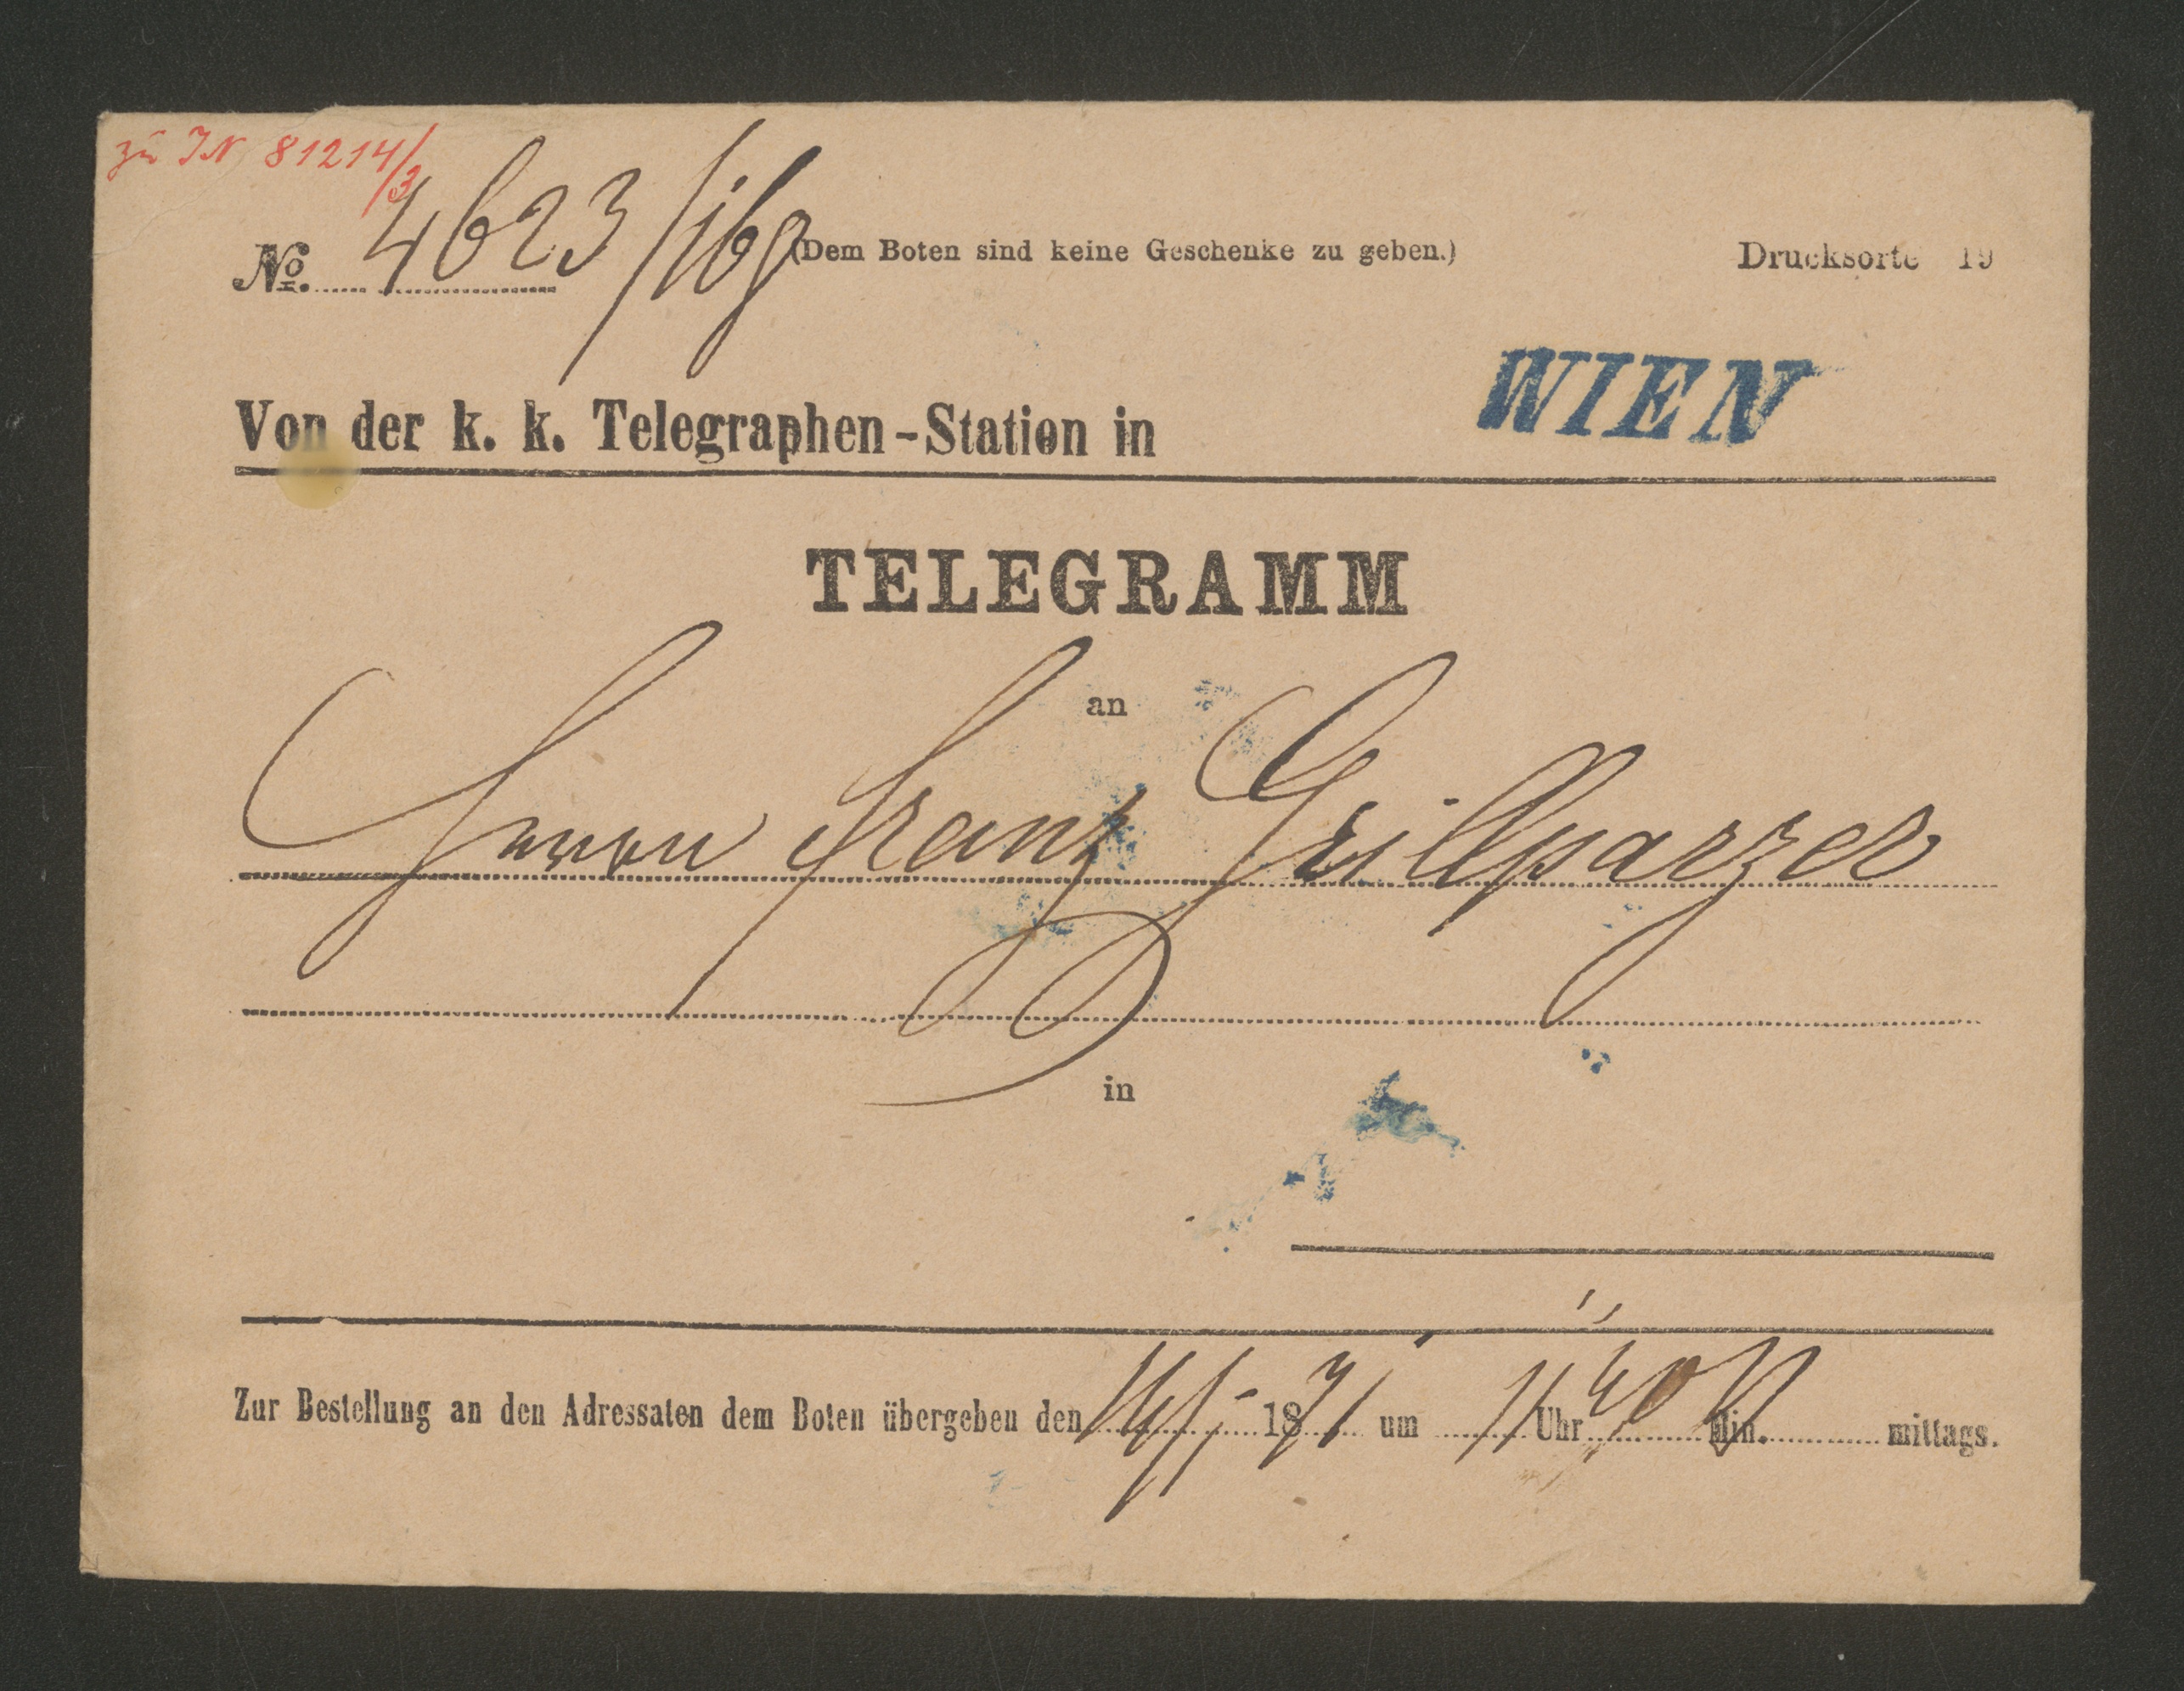 zu IN 81214/3
No. 4623/169
(Dem Boten sind keine Geschenke zu geben.)
Drucksorte 19
Von der k. k. Telegraphen-Station in WIEN
TELEGRAMM
an
Herrn Franz Grillparzer
in
Zur Bestellung an den Adressaten dem Boten übergeben den 1871 um 11 Uhr 40 Min. mittags.